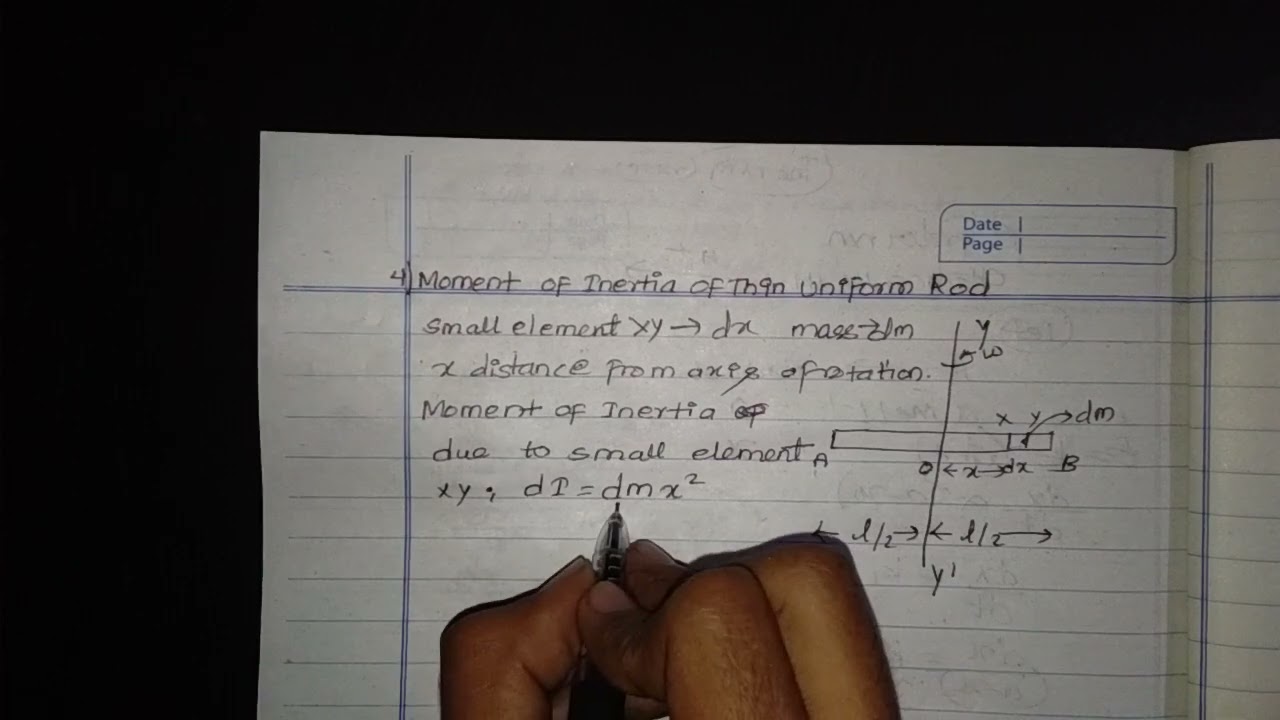 Date |
Page |
4) Moment of Inertia of Thin Uniform Rod
small element XY → dx mass → dm
x distance from axis of rotation.
Moment of Inertia of
due to small element
xy; dI = dmx²
Y
ω
X Y → dm
A
O ← x → dx B
← l/2 → ← l/2 →
Y'